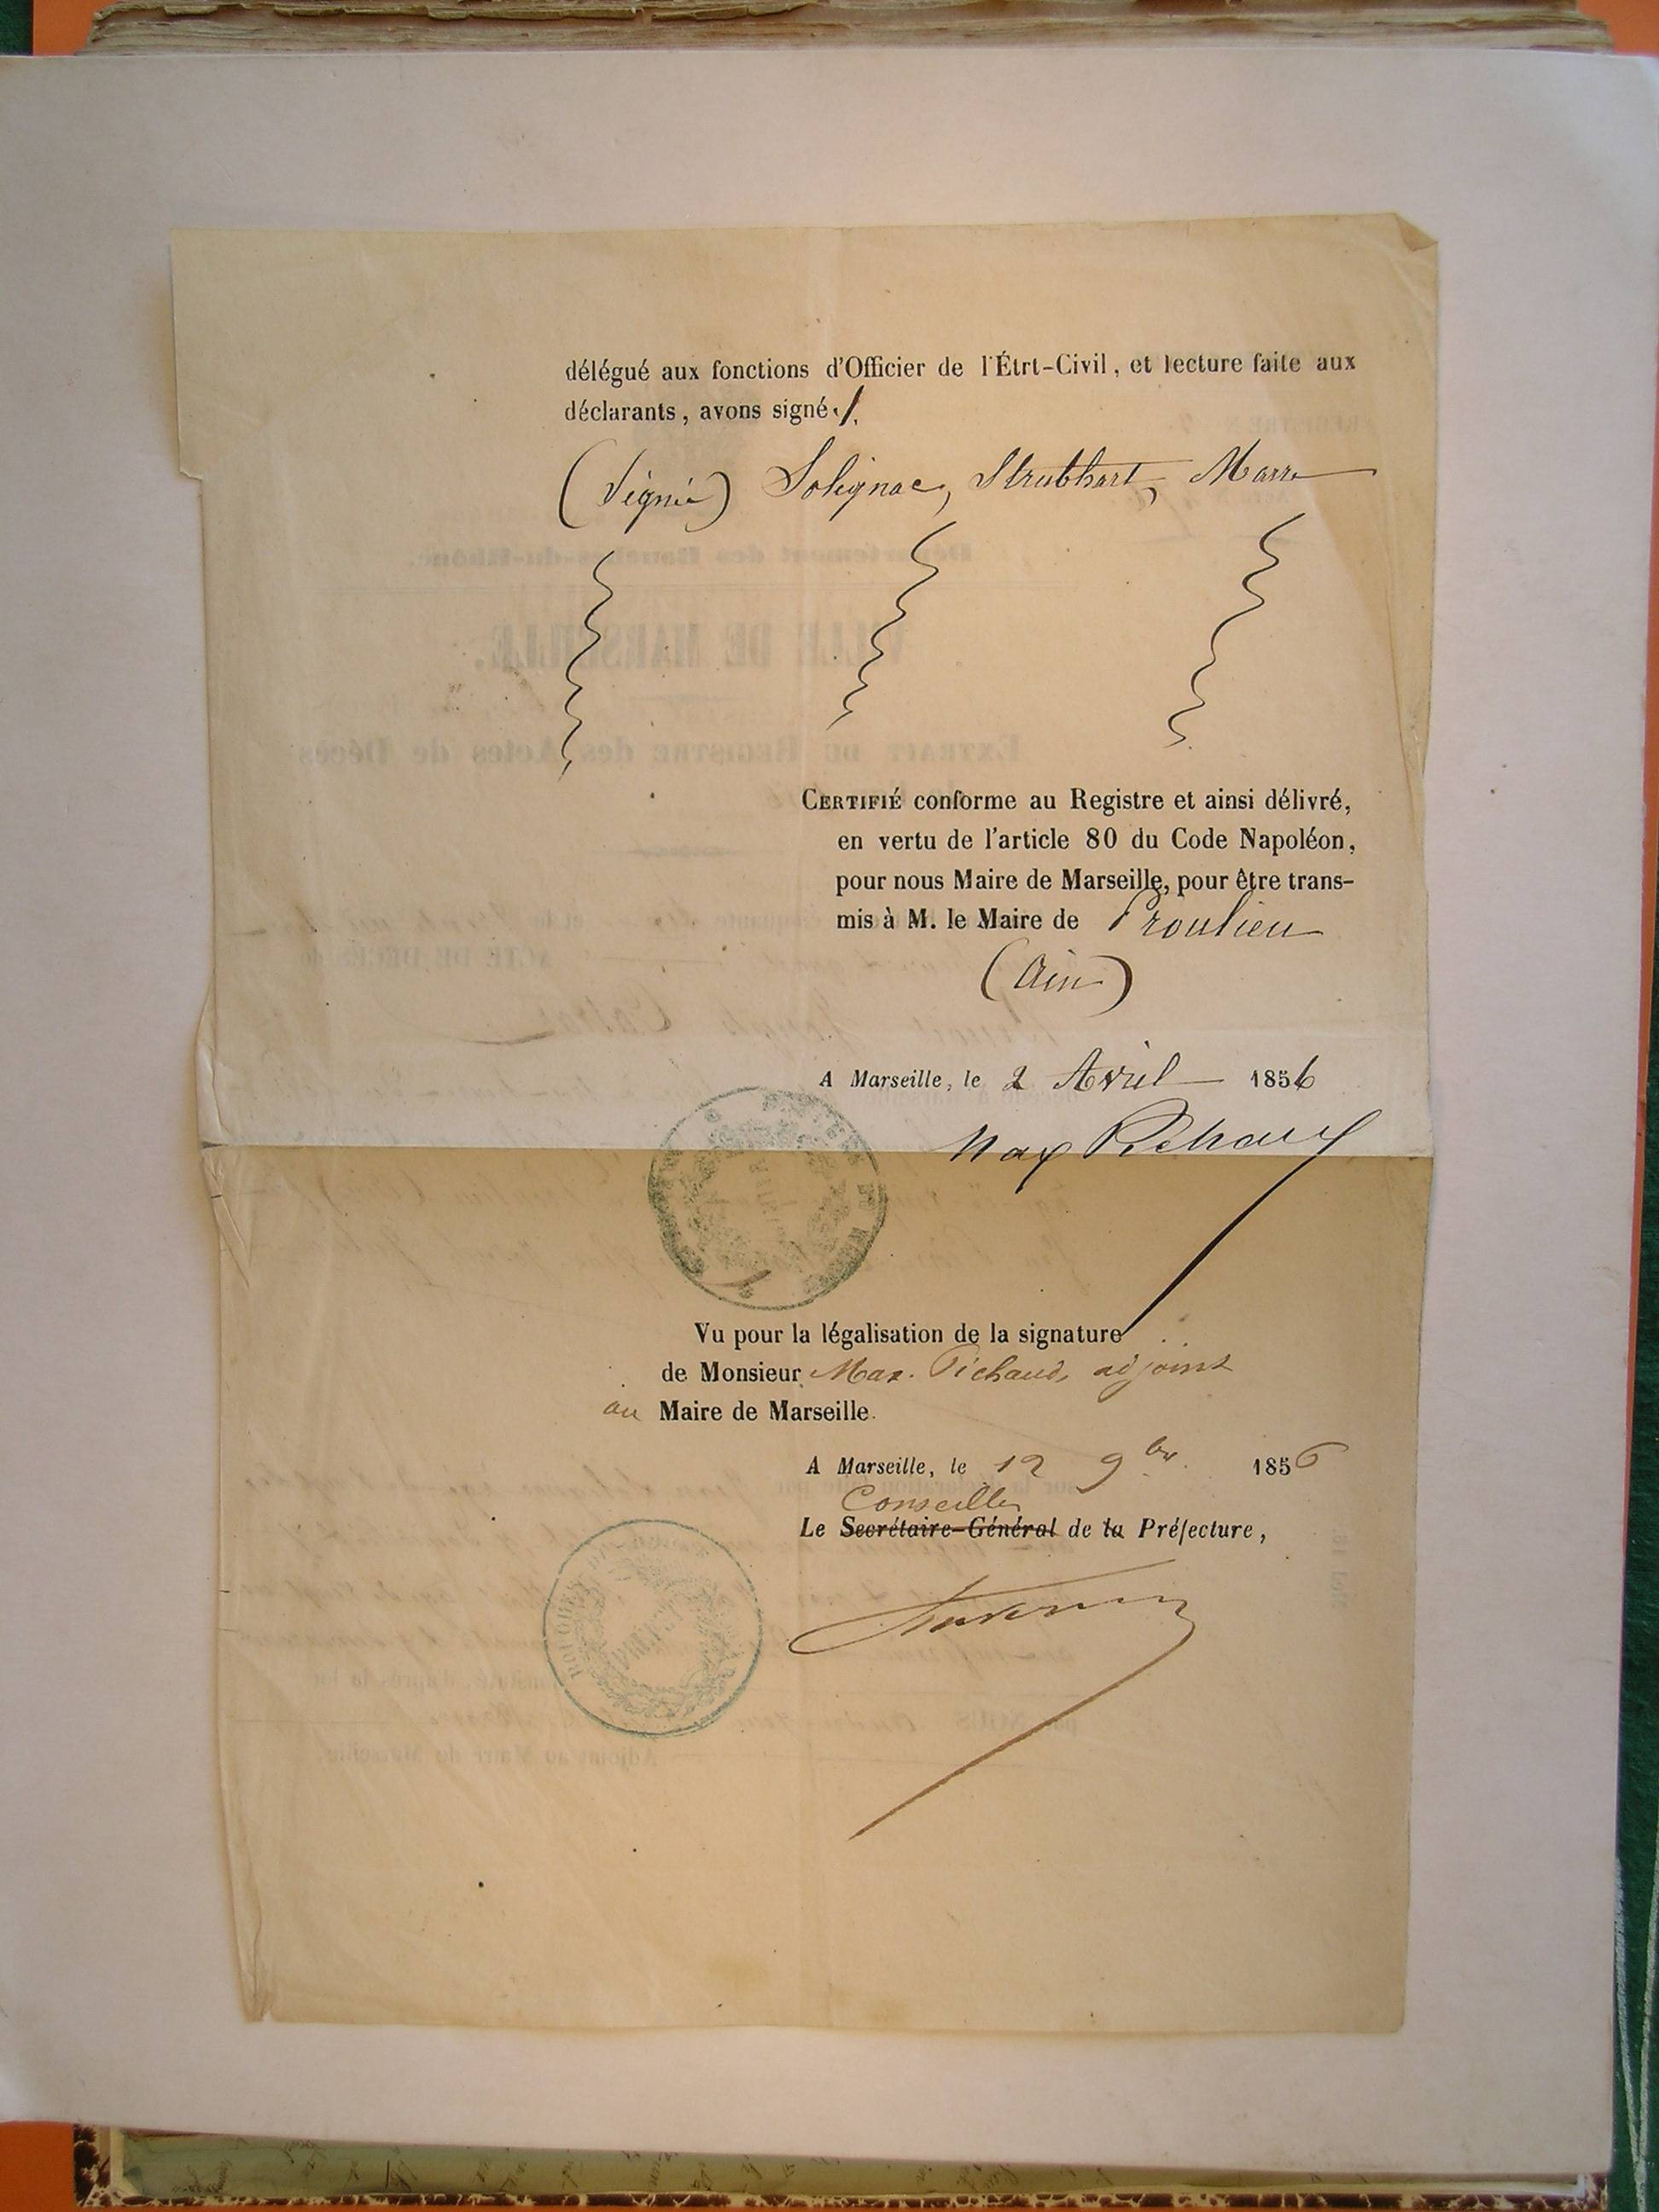 délégué aux fonctions d'Officier de l'Étrt-Civil, et lecture faite aux
déclarants, avons signé./.
(Signé) Solignac, Strubhart, Marre
CERTIFIÉ conforme au Registre et ainsi délivré,
en vertu de l'article 80 du Code Napoléon,
pour nous Maire de Marseille, pour être trans-
mis à M. le Maire de Proulieu
(Ain)
A Marseille, le 2 Avril 1856
Max
Vu pour la légalisation de la signature
de Monsieur Max. Pichaud, adjoint
au Maire de Marseille.
A Marseille, le 12 9bre 1856
Conseiller
Le Secrétaire-Général de la Préfecture,